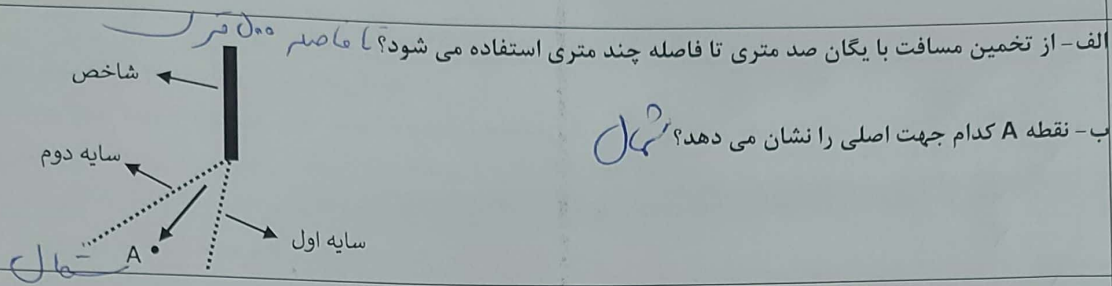 الف- از تخمین مسافت با یگان صد متری تا فاصله چند متری استفاده می شود؟ تا فاصله ۵۰۰ متری
شاخص
ب- نقطه A کدام جهت اصلی را نشان می دهد؟ شمال
سایه دوم
سایه اول
A
شمال